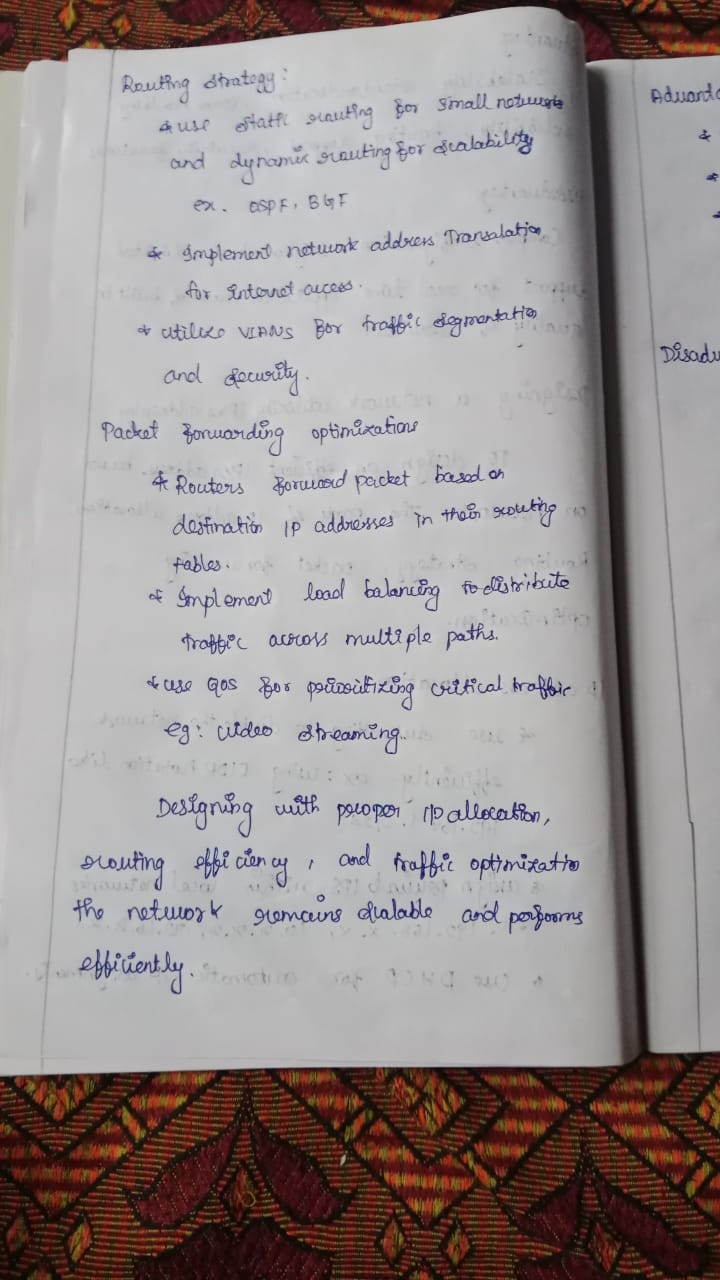 Routing strategy:
* use static routing for small networks
and dynamic routing for scalability
ex. OSPF, BGF
* Implement network address Transalation
for internet access.
* utilize VIANS For traffic segmentation
and security.
Packet forwarding optimizations
* Routers forword packet based on
destination IP addresses in their routing
tables.
* Implement load balancing to distribute
traffic across multiple paths.
* use QOS for prioritizing critical traffic
eg: video streaming.
Designing with proper IP allocation,
routing efficiency, and traffic optimization
the network remains scalable and performs
efficiently.
* Use DHCP for automatic
Advanta
*
*
*
Disadv